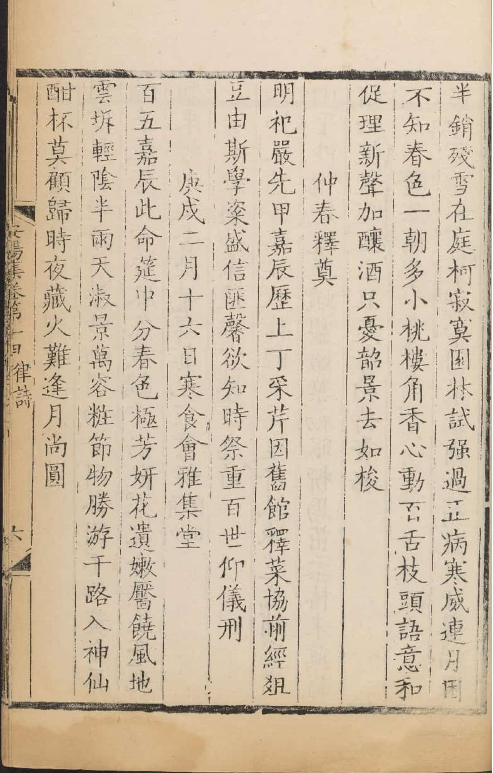 半銷殘雪在庭柯寂寞園林試强過正病寒威連月困
不知春色一朝多小桃樓角香心動百舌枝頭語意和
促理新聲加釀酒只憂韶景去如梭
仲春釋奠
明祀嚴先甲嘉辰歷上丁采芹因舊館釋菜協前經爼
豆由斯學粢盛信匪馨欲知時祭重百世仰儀刑
庚戌二月十六日寒食會雅集堂
百五嘉辰此命筵中分春色極芳妍花遺嫩靨饒風地
雲坼輕陰半雨天淑景萬容粧節物勝游千路入神仙
酣杯莫顧歸時夜藏火難逢月尚圓
陽集卷第十四 律詩 六